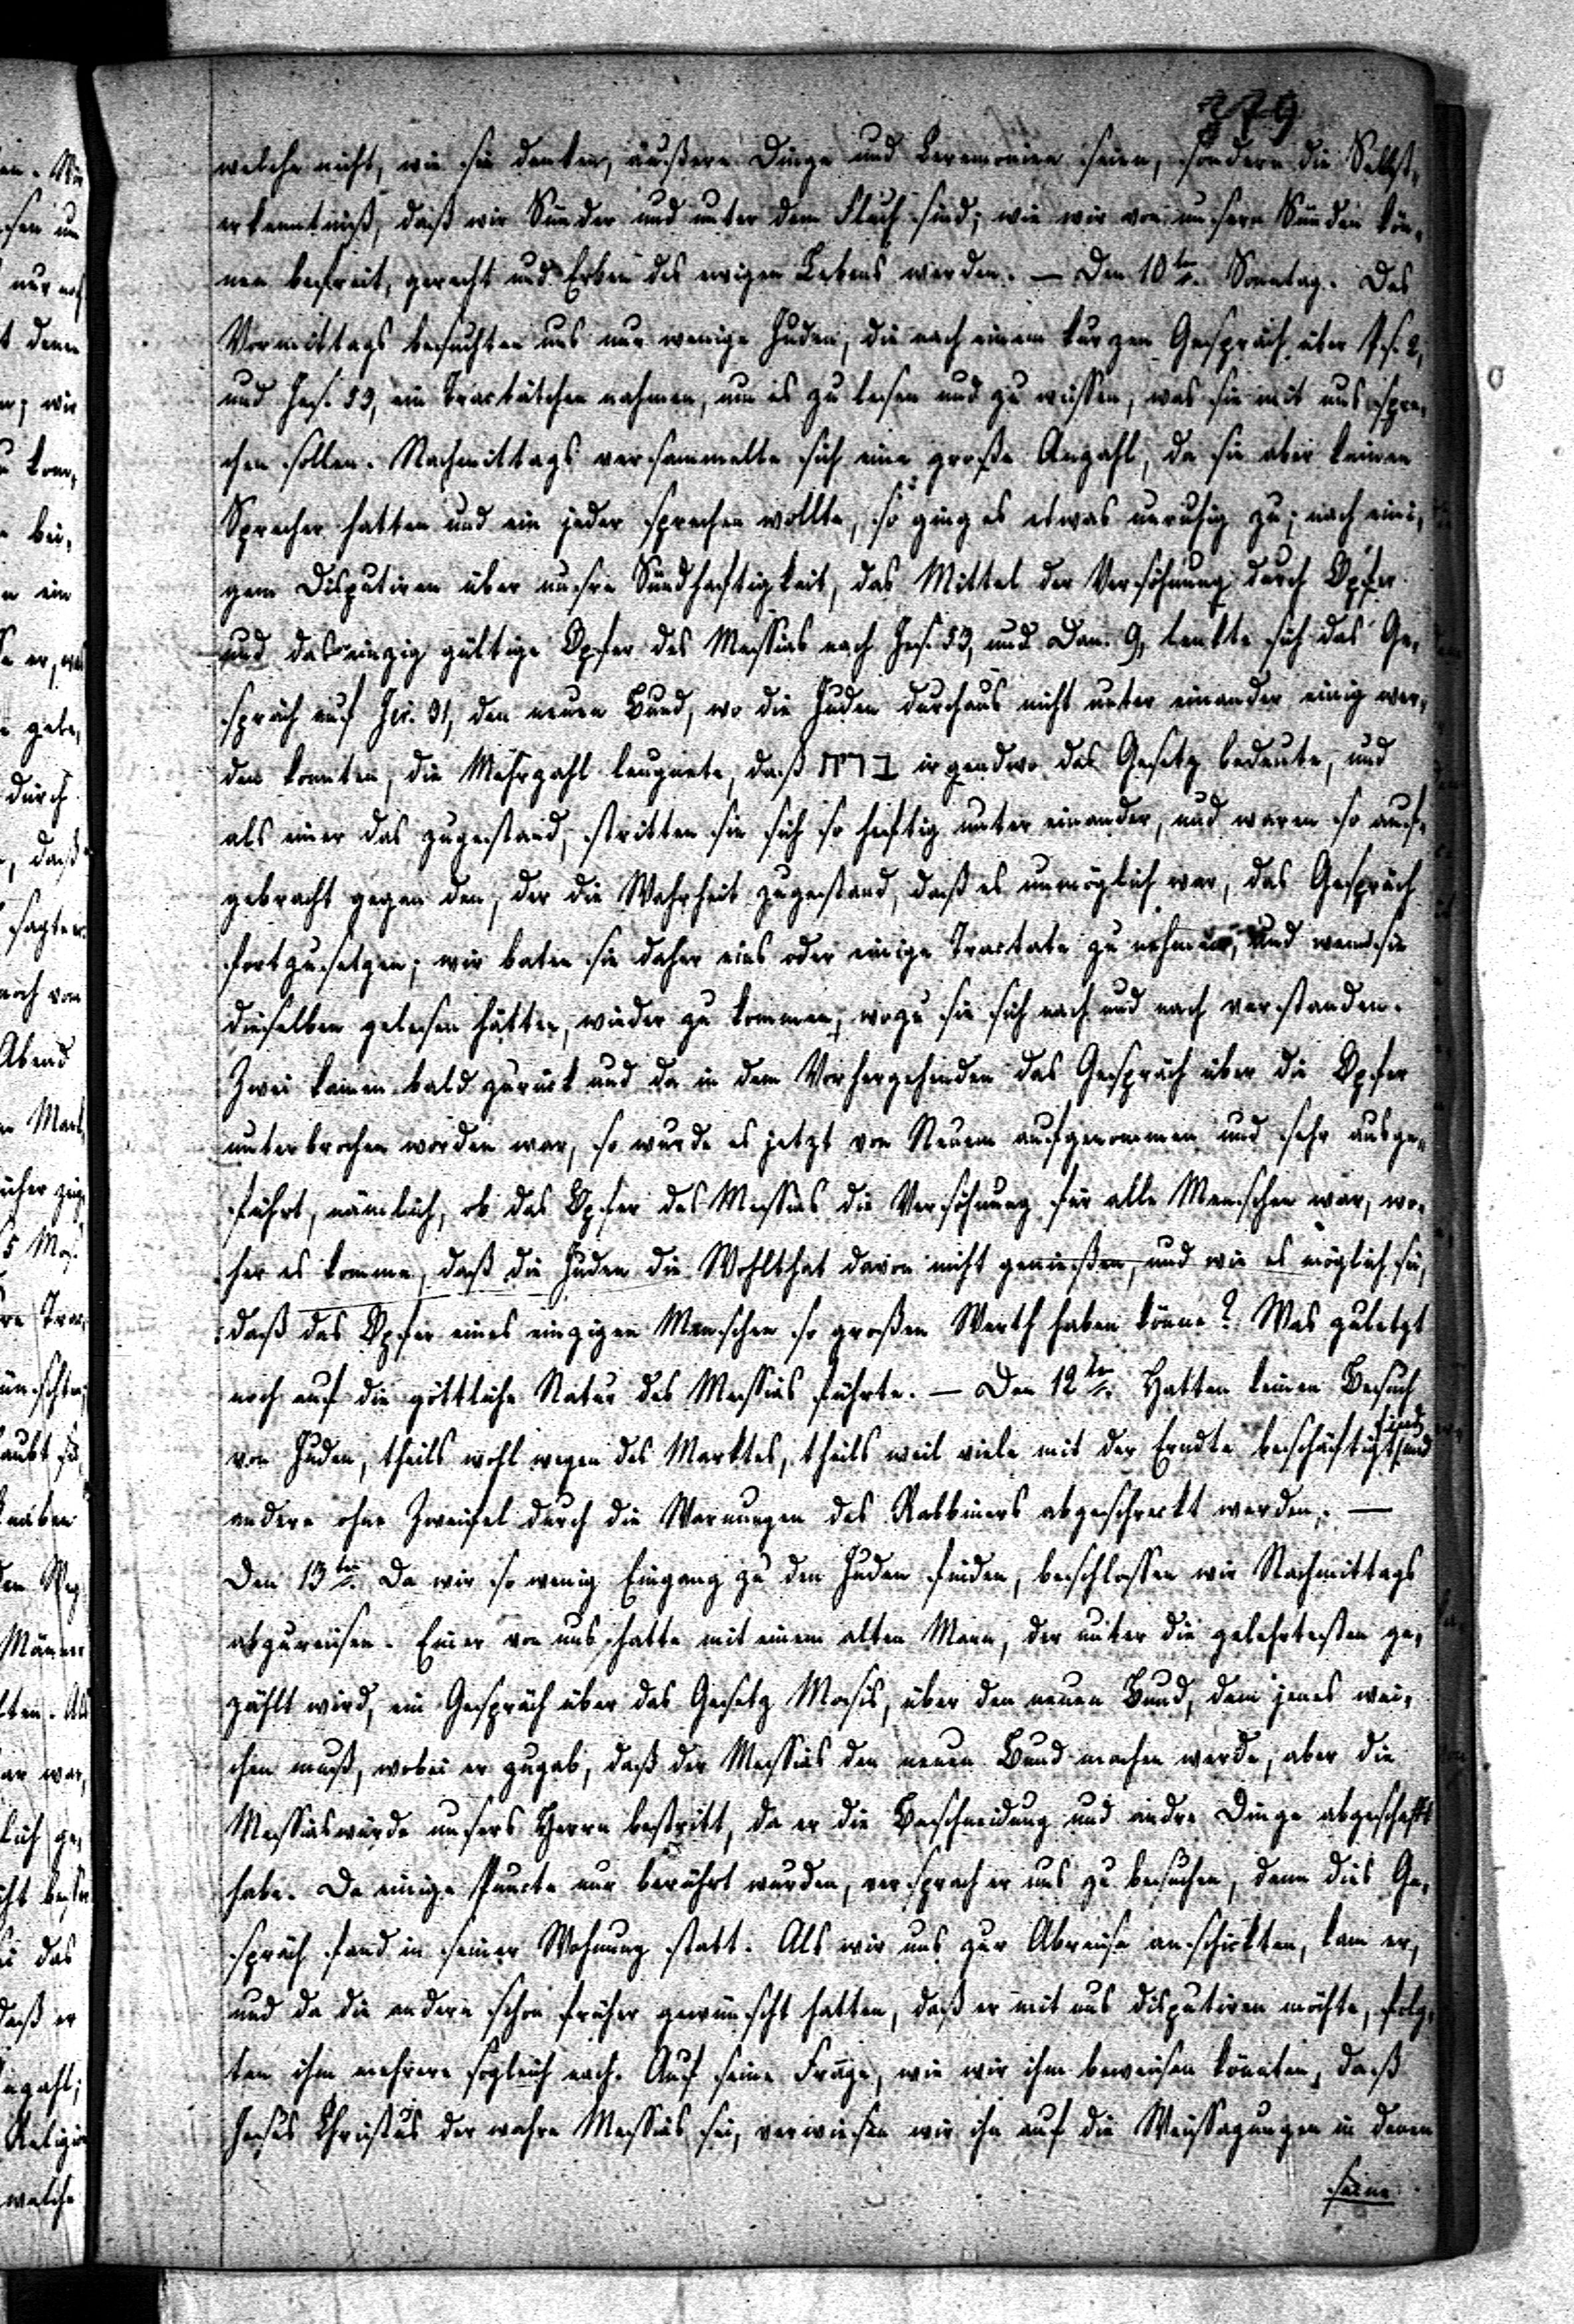 379
welche nicht, wie sie denken, äußere Dinge und Ceremonien seien, sondern die Selbst-
erkenntniß, daß wir Sünder und unter dem Fluch sind; wie wir von unsern Sünden kön-
nen befreit, gerecht und Erben des ewigen Lebens werden. — Den 10ten. Sonntag. Des
Vormittags besuchten uns nur wenige Juden, die nach einem kurzen Gespräch über Ps. 2,
und Jes. 53, ein Tractätchen nahmen, um es zu lesen und zu wissen, was sie mit uns spre-
chen sollen. Nachmittags versammelte sich eine große Anzahl, da sie aber keinen
Sprecher hatten und ein jeder sprechen wollte, so ging es etwas unruhig zu; nach eini-
gem Disputiren über unsre Sündhaftigkeit, das Mittel der Versöhnung durch Opfer
und das einzig gültige Opfer des Messias nach Jes. 53, und Dan. 9, lenkte sich das Ge-
spräch auf Jer. 31, den neuen Bund, wo die Juden durchaus nicht unter einander einig wer-
den konnten, die Mehrzahl leugnete, daß ברית irgendwo das Gesetz bedeute, und
als einer das zugestand, stritten sie sich so heftig unter einander, und waren so auf-
gebracht gegen den, der die Wahrheit zugestand, daß es unmöglich war, das Gespräch
fortzusetzen; wir baten sie daher eins oder einige Tractate zu nehmen, und wenn sie
dieselben gelesen hätten, wieder zu kommen, wozu sie sich nach und nach verstanden.
Zwei kamen bald zurück und da in dem Vorhergehenden das Gespräch über die Opfer
unterbrochen worden war, so wurde es jetzt von Neuem aufgenommen und sehr ausge-
führt, nämlich, ob das Opfer des Messias die Versöhnung für alle Menschen war, wo-
her es komme, daß die Juden die Wohlthat davon nicht genießen, und wie es möglich sei,
daß das Opfer eines einzigen Menschen so großen Werth haben könne? Was zuletzt
noch auf die göttliche Natur des Messias führte. — Den 12ten. Hatten keinen Besuch
von Juden, theils wohl wegen des Marktes, theils weil viele mit der Erndte beschäftigt sind und
andere ohne Zweifel durch die Warnungen des Rabbiners abgeschreckt werden. —
Den 13ten. Da wir so wenig Eingang zu den Juden finden, beschlossen wir Nachmittags
abzureisen. Einer von uns hatte mit einem alten Mann, der unter die gelehrtesten ge-
zählt wird, ein Gespräch über das Gesetz Mosis, über den neuen Bund, dem jenes wei-
chen muß, wobei er zugab, daß der Messias den neuen Bund machen werde, aber die
Messiaswürde unsers Herrn bestritt, da er die Beschneidung und andre Dinge abgeschafft
habe. Da einige Puncte nur berührt wurden, versprach er uns zu besuchen, denn dies Ge-
spräch fand in seiner Wohnung statt. Als wir uns zur Abreise anschickten, kam er,
und da die andern schon früher gewünscht hatten, daß er mit uns disputiren möchte, folg-
ten ihm mehrere sogleich nach. Auf seine Frage, wie wir ihm beweisen könnten, daß
Jesus Christus der wahre Messias sei, verwiesen wir ihn auf die Weissagungen in denen
seine